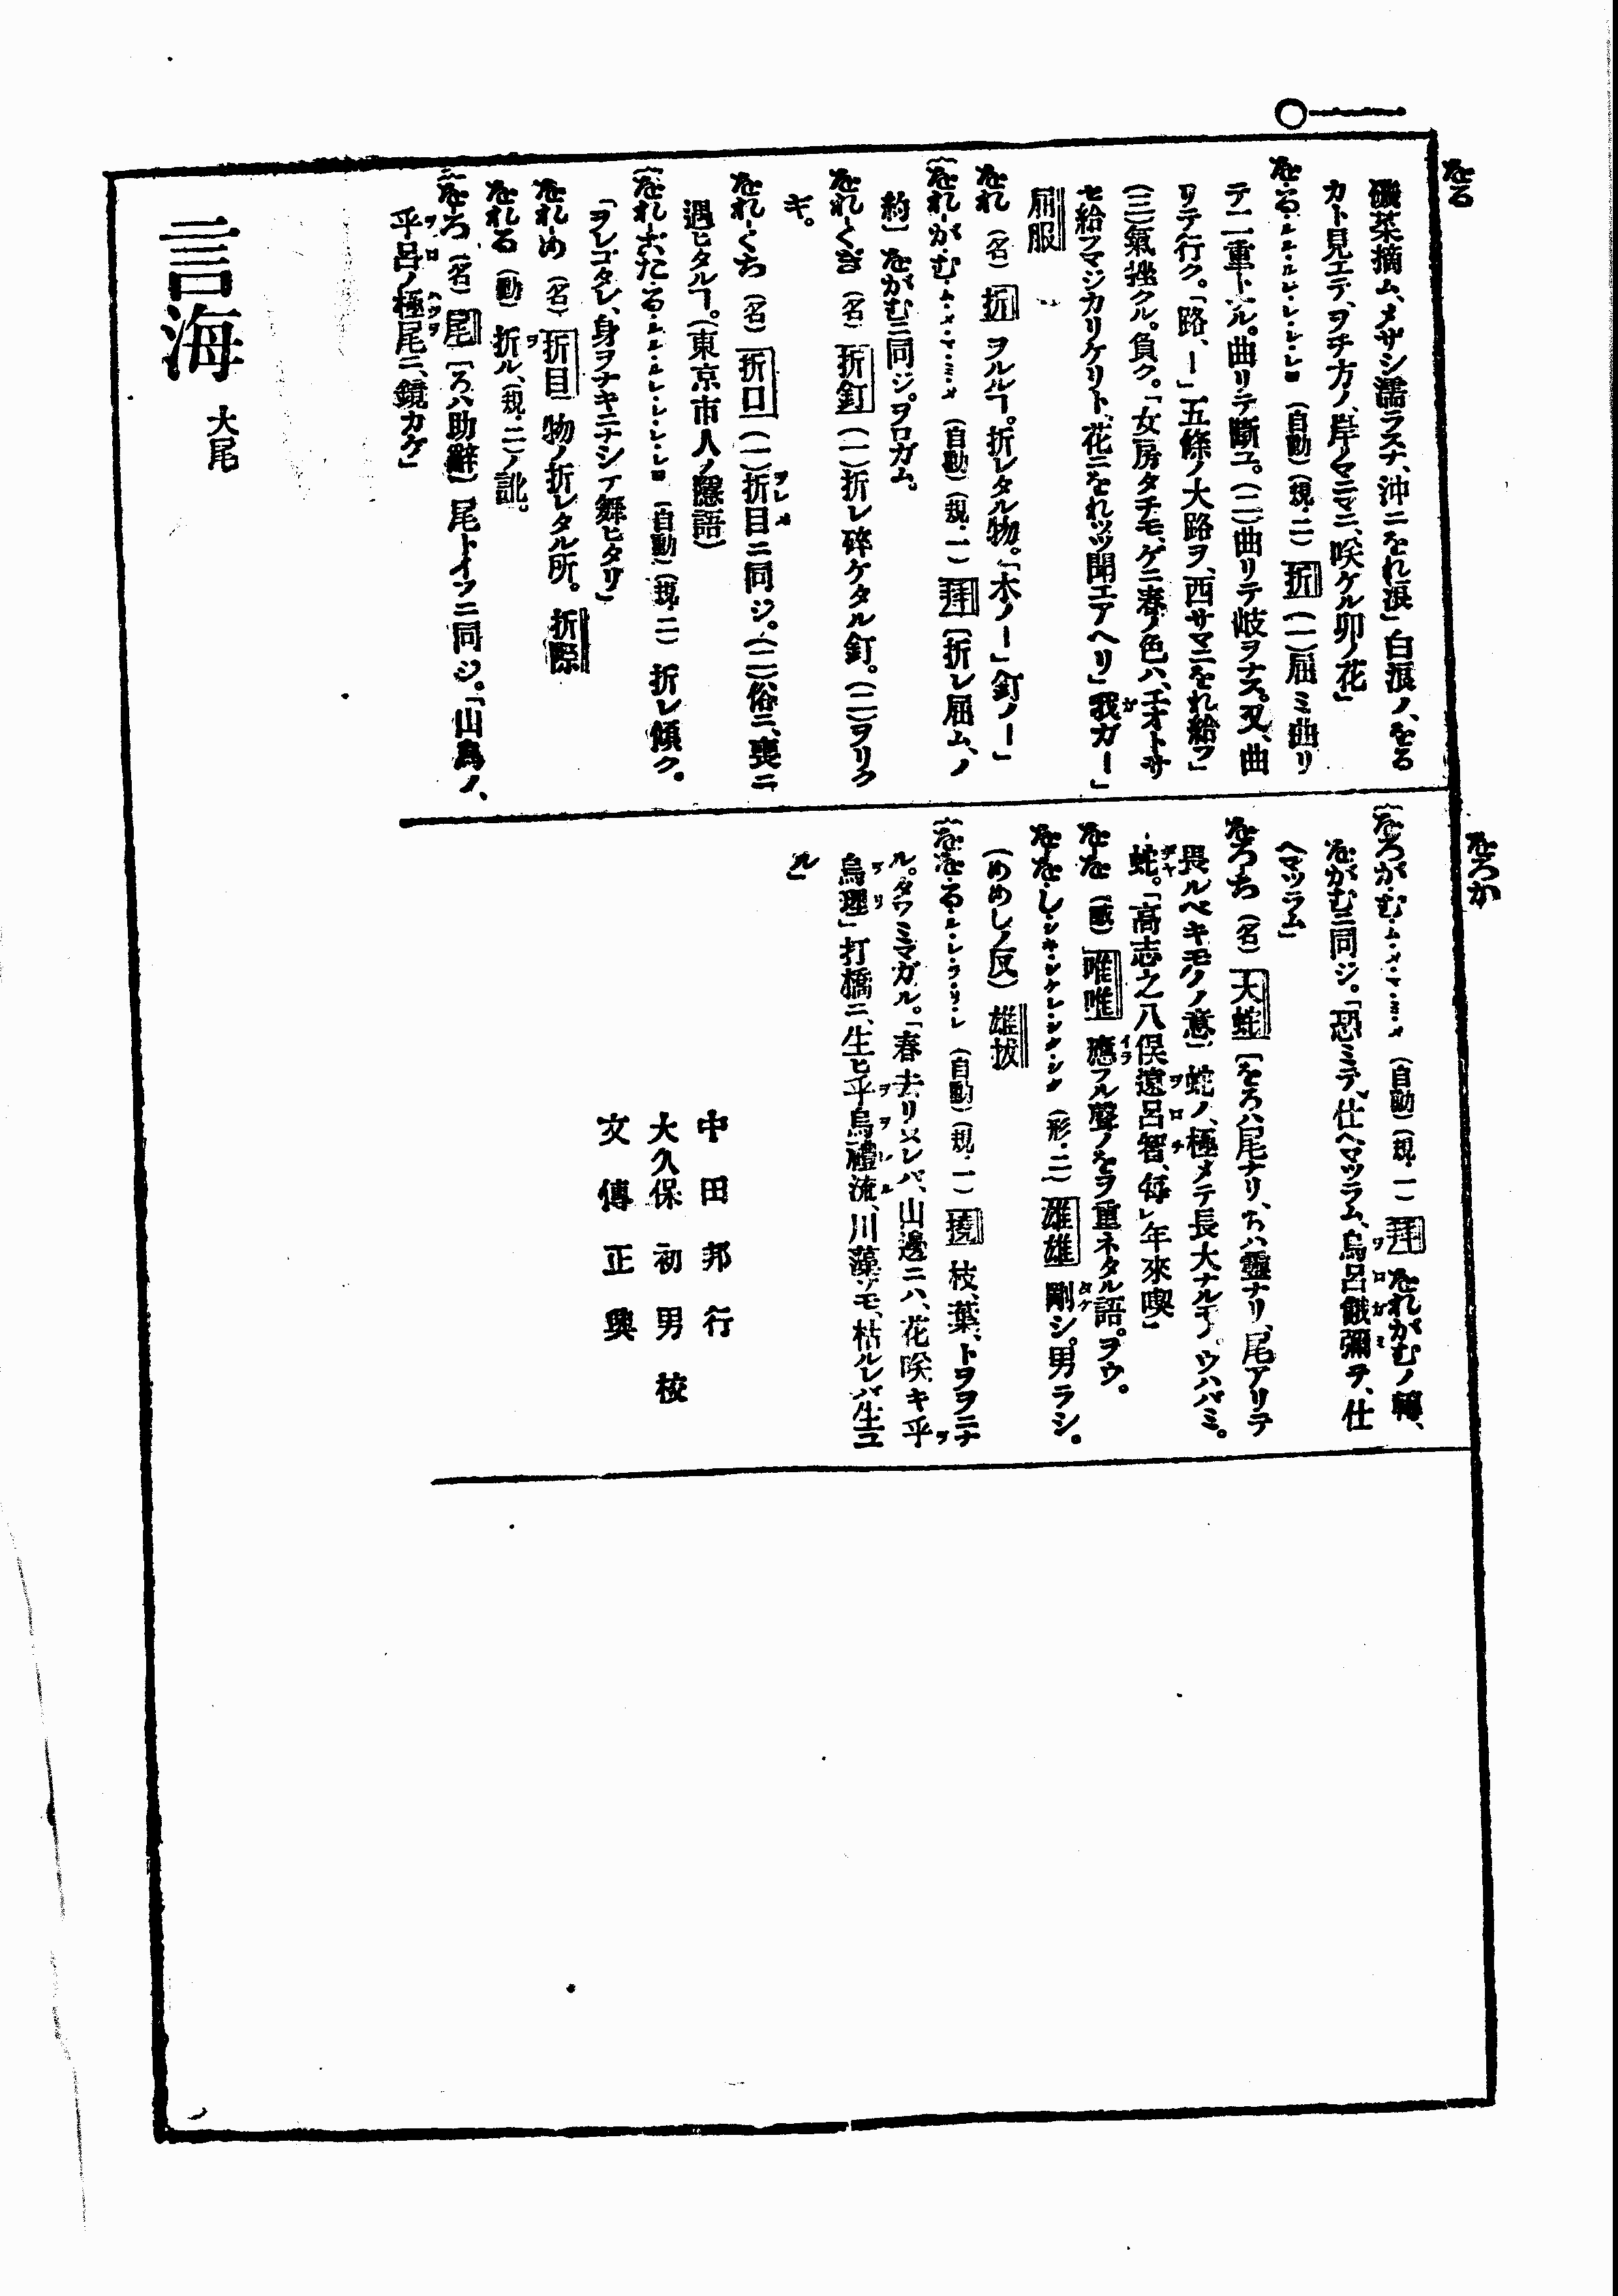 一〇
をる
磯菜摘ム、メザシ濡ラスナ、沖ニをれ浪」白浪ノ、をる
カト見エテ、ヲチ方ノ、岸ノマニマニ、咲ケル卯ノ花」
を・る・ルル・ルレ・レ・レ・レヨ（自動）（規・二）折（一）屈ミ曲リ
テ二重トナル。曲リテ斷ユ。（二）曲リテ岐ヲナス。又、曲
リテ行ク。「路、―」五條ノ大路ヲ、西サマニをれ給フ」
（三）氣挫クル。負ク。「女房タチモ、ゲニ春ノ色ハ、エオトサ
セ給フマジカリケリト、花ニをれツツ聞エアヘリ」我ガ―」
屈服
をれ（名）折ヲルルヿ。折レタル物。「木ノ―」釘ノ―」
をれ-が・む・ム・メ・マ・ミ・メ（自動）（規・一）拜〔折レ屈ム、ノ
約〕をがむニ同ジ。ヲロガム。
をれ-くぎ（名）折釘（一）折レ碎ケタル釘。（二）ヲリク
ギ。
をれ-くち（名）折口（一）折目ニ同ジ。（二）俗ニ、喪ニ
遇ヒタルヿ。（東京市人ノ隱語）
をれ-こだ・る・ルル・ルレ・レ・レ・レヨ（自動）（規・二）折レ傾ク。
「ヲレコダレ、身ヲナキニナシテ舞ヒタリ」
をれ-め（名）折目 物ノ折レタル所。折際
をれる（動）折ル、（規・二）ノ訛。
をろ（名）尾〔ろハ助辭〕尾トイフニ同ジ。「山鳥ノ、
乎呂ノ極尾ニ、鏡カケ」
言海 大尾
をろか
をろが・む・ム・メ・マ・ミ・メ（自動）（規・一）拜 をれがむノ轉、
をがむニ同ジ。「恐ミテ、仕ヘマツラム、烏呂餓彌テ、仕
ヘマツラム」
をろち（名）大蛇〔をろハ尾ナリ、ちハ靈ナリ、尾アリテ
畏ルベキモノノ意〕蛇ノ、極メテ長大ナルモノ。ウハバミ。
蛇。「高志之八俣遠呂智、每レ年來喫」
をを（感）唯唯 應フル聲ノをヲ重ネタル語。ヲウ。
をを・し・シキ・シケレ・シク・シク（形・二）雄雄 剛シ。男ラシ。
（めめしノ反）雄拔
をを・る・ル・レ・ラ・リ・レ（自動）（規・一）撓 枝、葉、トヲヲニナ
ル。タワミマガル。「春去リヌレバ、山邊ニハ、花咲キ乎
烏理」打橋ニ、生ヒ乎烏禮流、川藻ゾモ、枯ルレバ生ユ
ル」
中田邦行
大久保初男 校
文傳正興